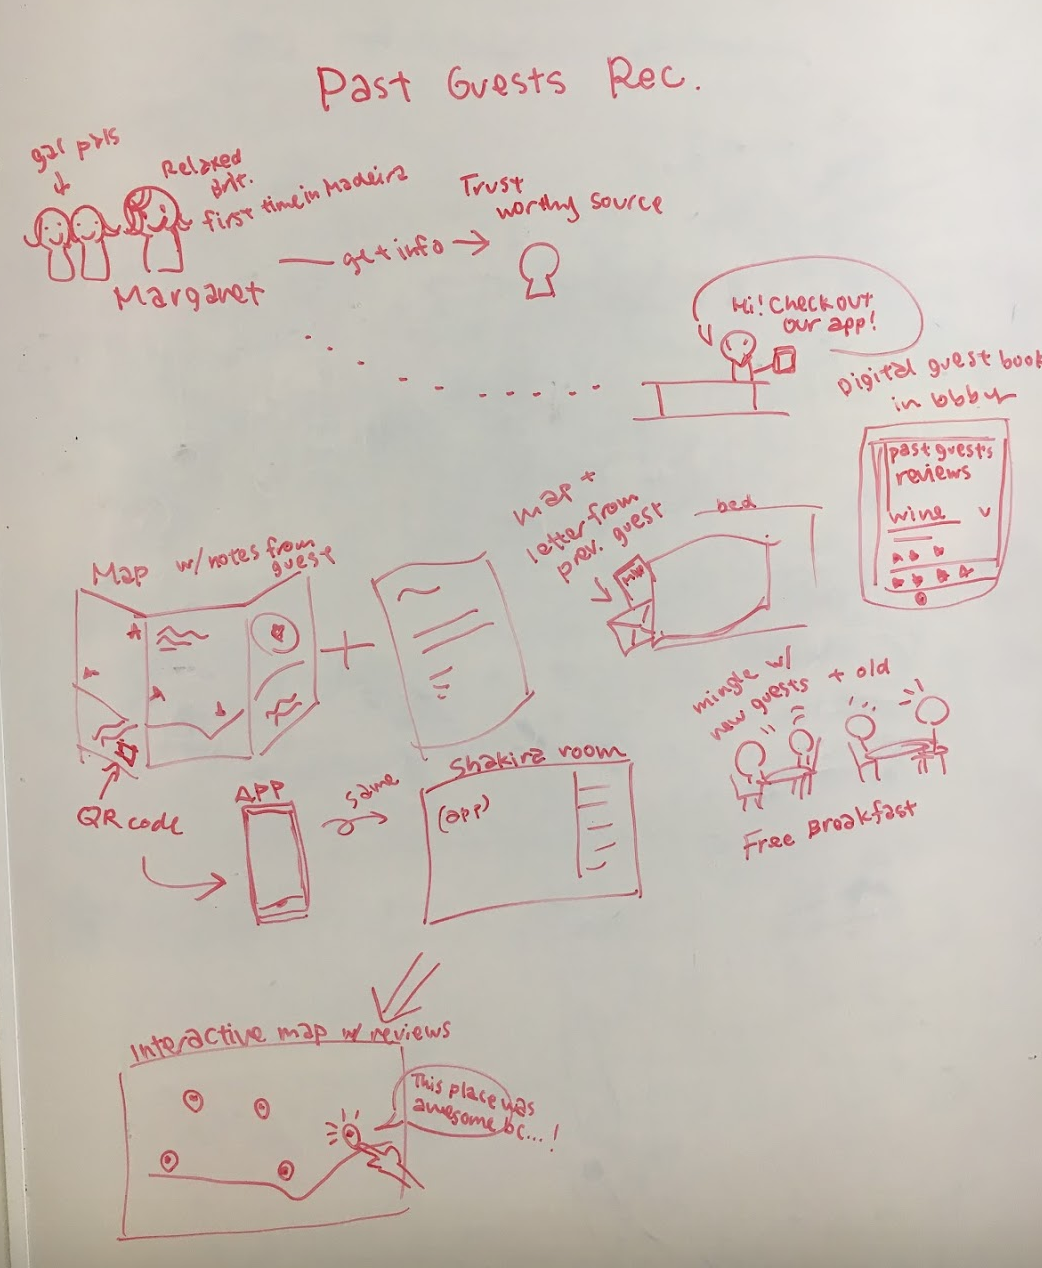 Past Guests Rec.
gal pals
Relaxed
Brit.
first time in Madeira
Margaret
get info
Trust
worthy source
Hi! Check out
our app!
Digital guest book
in lobby
past guests
reviews
wine
map +
letter from
prev. guest
bed
Map w/ notes from
guest
mingle w/
new guests + old
Free Breakfast
QR code
APP
same
Shakira room
(app)
Interactive map w/ reviews
This place was
awesome bc...!